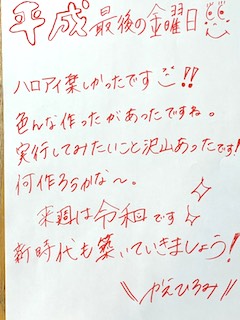 平成最後の金曜日
ハロアイ楽しかったです!!
色んな作ったがあったですね。
実行してみたいこと沢山あったです!
何作ろうかな〜。
来週は令和です
新時代も築いていきましょう!
かえひろみ